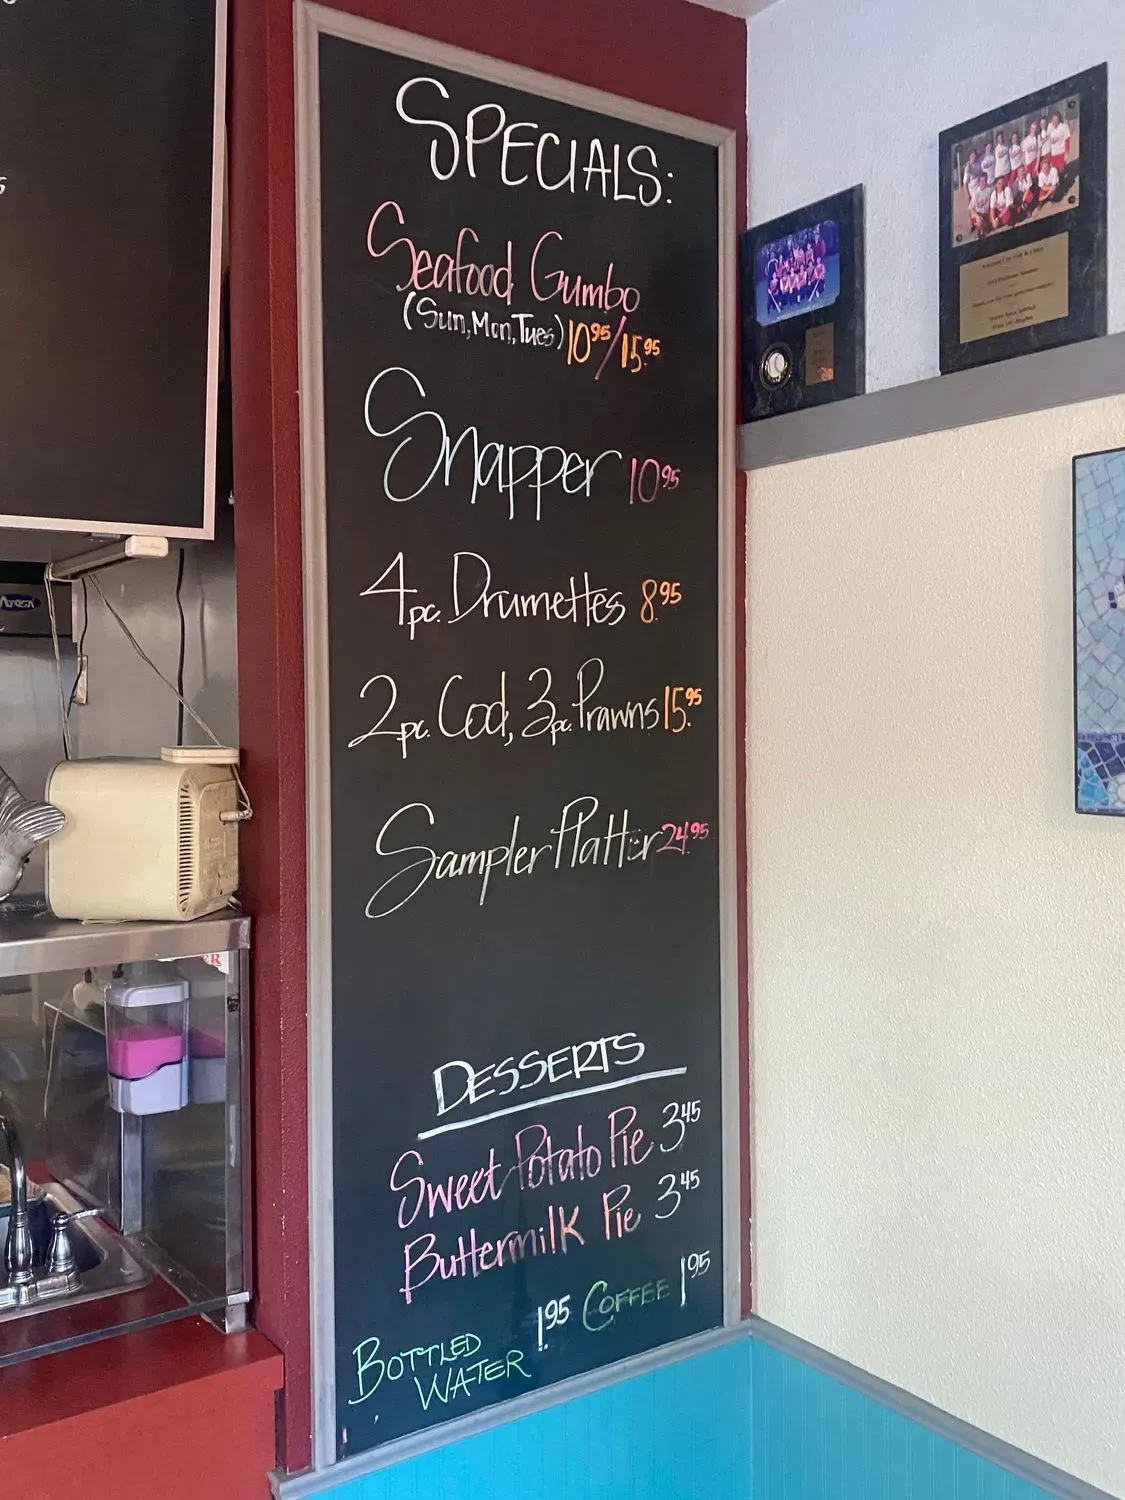 SPECIALS:
Seafood Gumbo
(Sun, Mon, Tues) 10.95/15.95
Snapper 10.95
4pc. Drumettes 8.95
2pc. Cod, 3pc. Prawns 15.95
Sampler Platter 24.95
DESSERTS
Sweet Potato Pie 3.45
Buttermilk Pie 3.45
1.95 COFFEE 1.95
BOTTLED
WATER